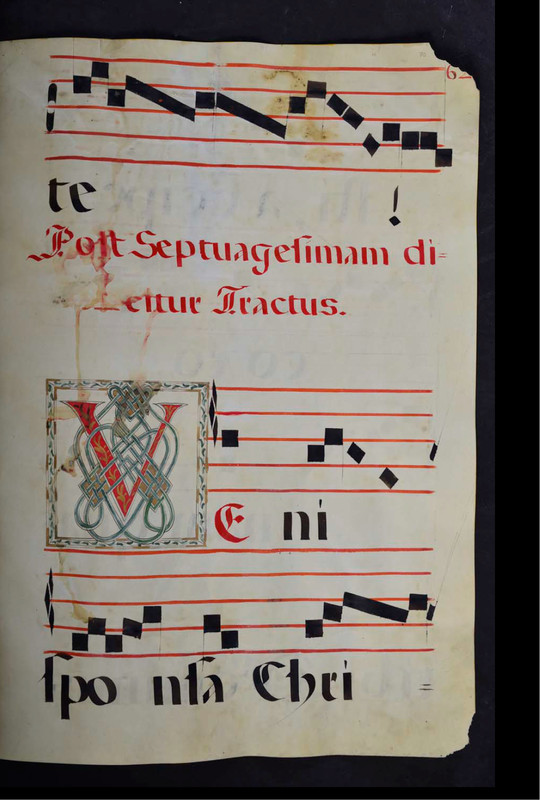 6
te !
Post Septuagesimam di=
citur Tractus.
VE ni
spo nsa Chri =